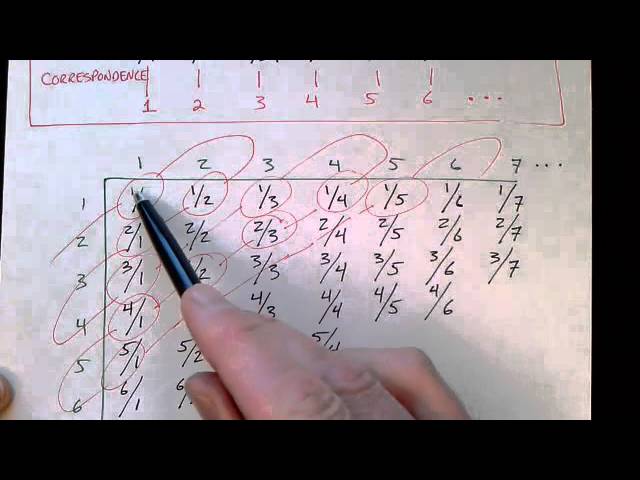 CORRESPONDENCE
1 2 3 4 5 6 ...
1 2 3 4 5 6 7 ...
1 1/2 1/3 1/4 1/5 1/6 1/7
2 2/1 2/2 2/3 2/4 2/5 2/6 2/7
3 3/1 3/3 3/4 3/5 3/6 3/7
4 4/1 4/3 4/4 4/5 4/6
5 5/1 5/2
6 6/1